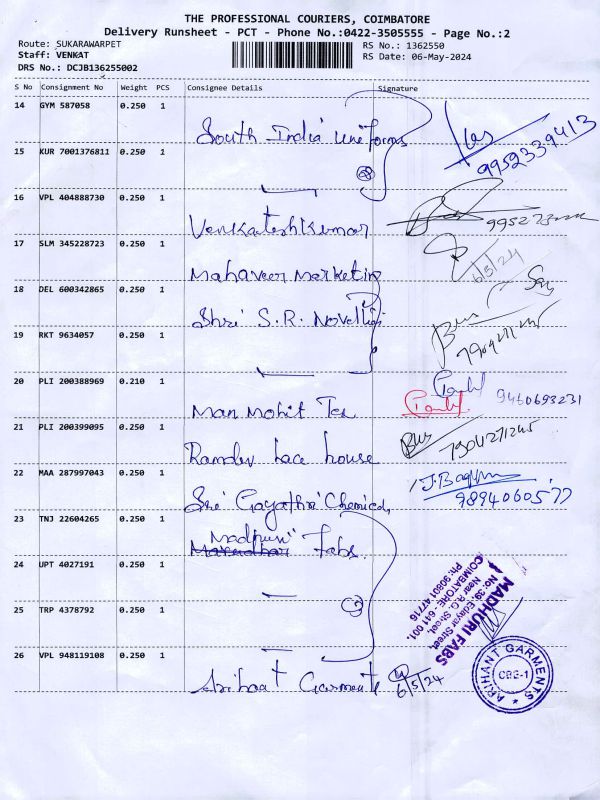 THE PROFESSIONAL COURIERS, COIMBATORE
Delivery Runsheet - PCT - Phone No.:0422-3505555 - Page No.:2
Route: SUKARAWARPET
RS No.: 1362550
Staff: VENKAT
RS Date: 06-May-2024
DRS No.: DCJB136255002
S No Consignment No Weight PCS Consignee Details Signature
14 GYM 587058 0.250 1 South India Uniforms 9952339413
15 KUR 7001376811 0.250 1
16 VPL 404888730 0.250 1 Venkatesh Kumar
17 SLM 345228723 0.250 1 Mahaveer Marketing 6/5/24
18 DEL 600342865 0.250 1 Shri S.R. Novelties
19 RKT 9634057 0.250 1
20 PLI 200388969 0.210 1 Man Mohit Tex 9460693231
21 PLI 200399095 0.250 1 Ramdev Lace house 7904271245
22 MAA 287997043 0.250 1 Sri Gayathri Chemicals 9894060577
23 TNJ 22604265 0.250 1 Madhuri Fabs.
24 UPT 4027191 0.250 1
25 TRP 4378792 0.250 1
26 VPL 948119108 0.250 1 Arihant Garments 6/5/24
MADHURI FABS
No: 39, Edayar Street,
Near R.G. Street,
COIMBATORE - 611 001.
Ph: 90801 47716
ARIHANT GARMENTS
CBE-1